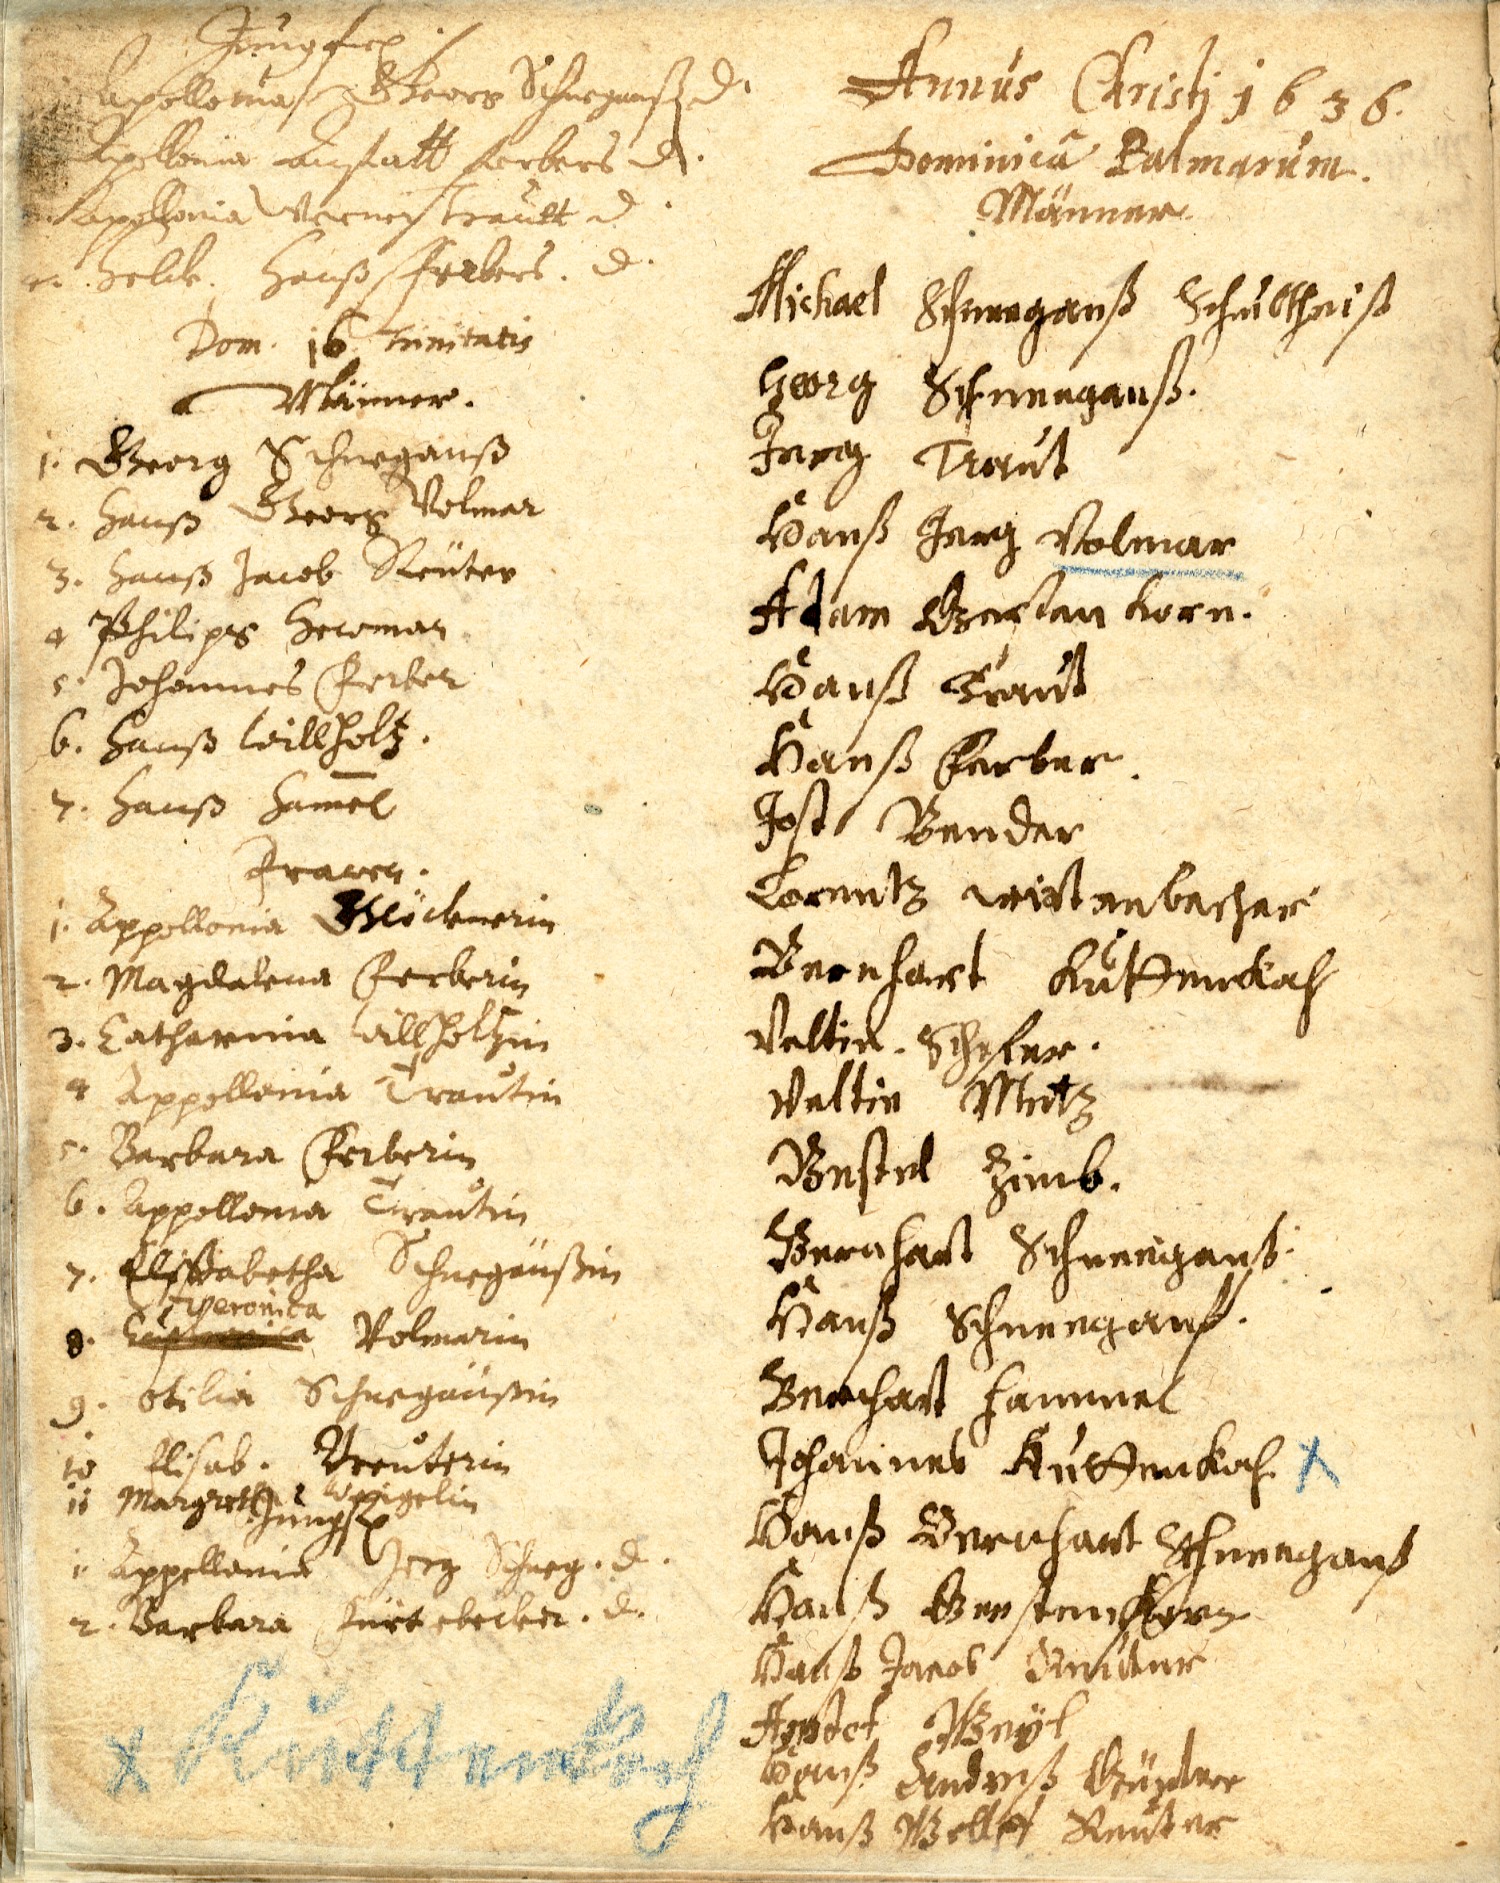 Jungfr.
Apollonia Georg Schneganß d.
Apollonia Anstatt Ferbers d.
Apollonia Trautt d
Hanß Ferbers. d.
Dom. 16 Trinitatis
Männer.
1. Georg Schneganß
2. Hanß Georg Volmar
3. Hanß Jacob Reüter
4 Philips Hecomar
5. Johannes Ferber
6. Hanß Willholtz.
7. Hanß Ham̅el
Frawen.
1. Appollonia Glöcknerin
2. Magdalena Ferberin
3. Catharina Willholtzin
4 Appollonia Trautin
5. Barbara Ferberin
6. Appollonia Trautin
7. Elisabetha Schnegänßin
Veronica
8. Volmarin
9. Otilia Schnegänßin
10 Elisab. Reuterin
11 Margreth Weigelin
Jungfr
1 Appollonia Jerg Schneg. d.
2. Barbara d.
x Küttenkoch
Annus Christj 1636.
Dominica Palmarum.
Männer.
Michael Schneeganß Schultheist
Georg Schneeganß.
Jerg Traut
Hanß Jerg Volmar
Adam Gerstankorn.
Hanß Traut
Hanß Ferber.
Jost Bender
Lorentz Wistenbacher
Bernhart Kuttenkoch
Veltin Schefer.
Veltin Mutz
Bestel Zimb.
Bernhart Schneegans.
Hanß Schneeganß.
Bernhart Hammel
Johannes Kuttenkoch x
Hanß Bernhart Schneeganß
Hanß Gerstenkorn
Hanß Jacob Reuter
Weyl
Hanß Endreß
Hanß Wolff Reuter